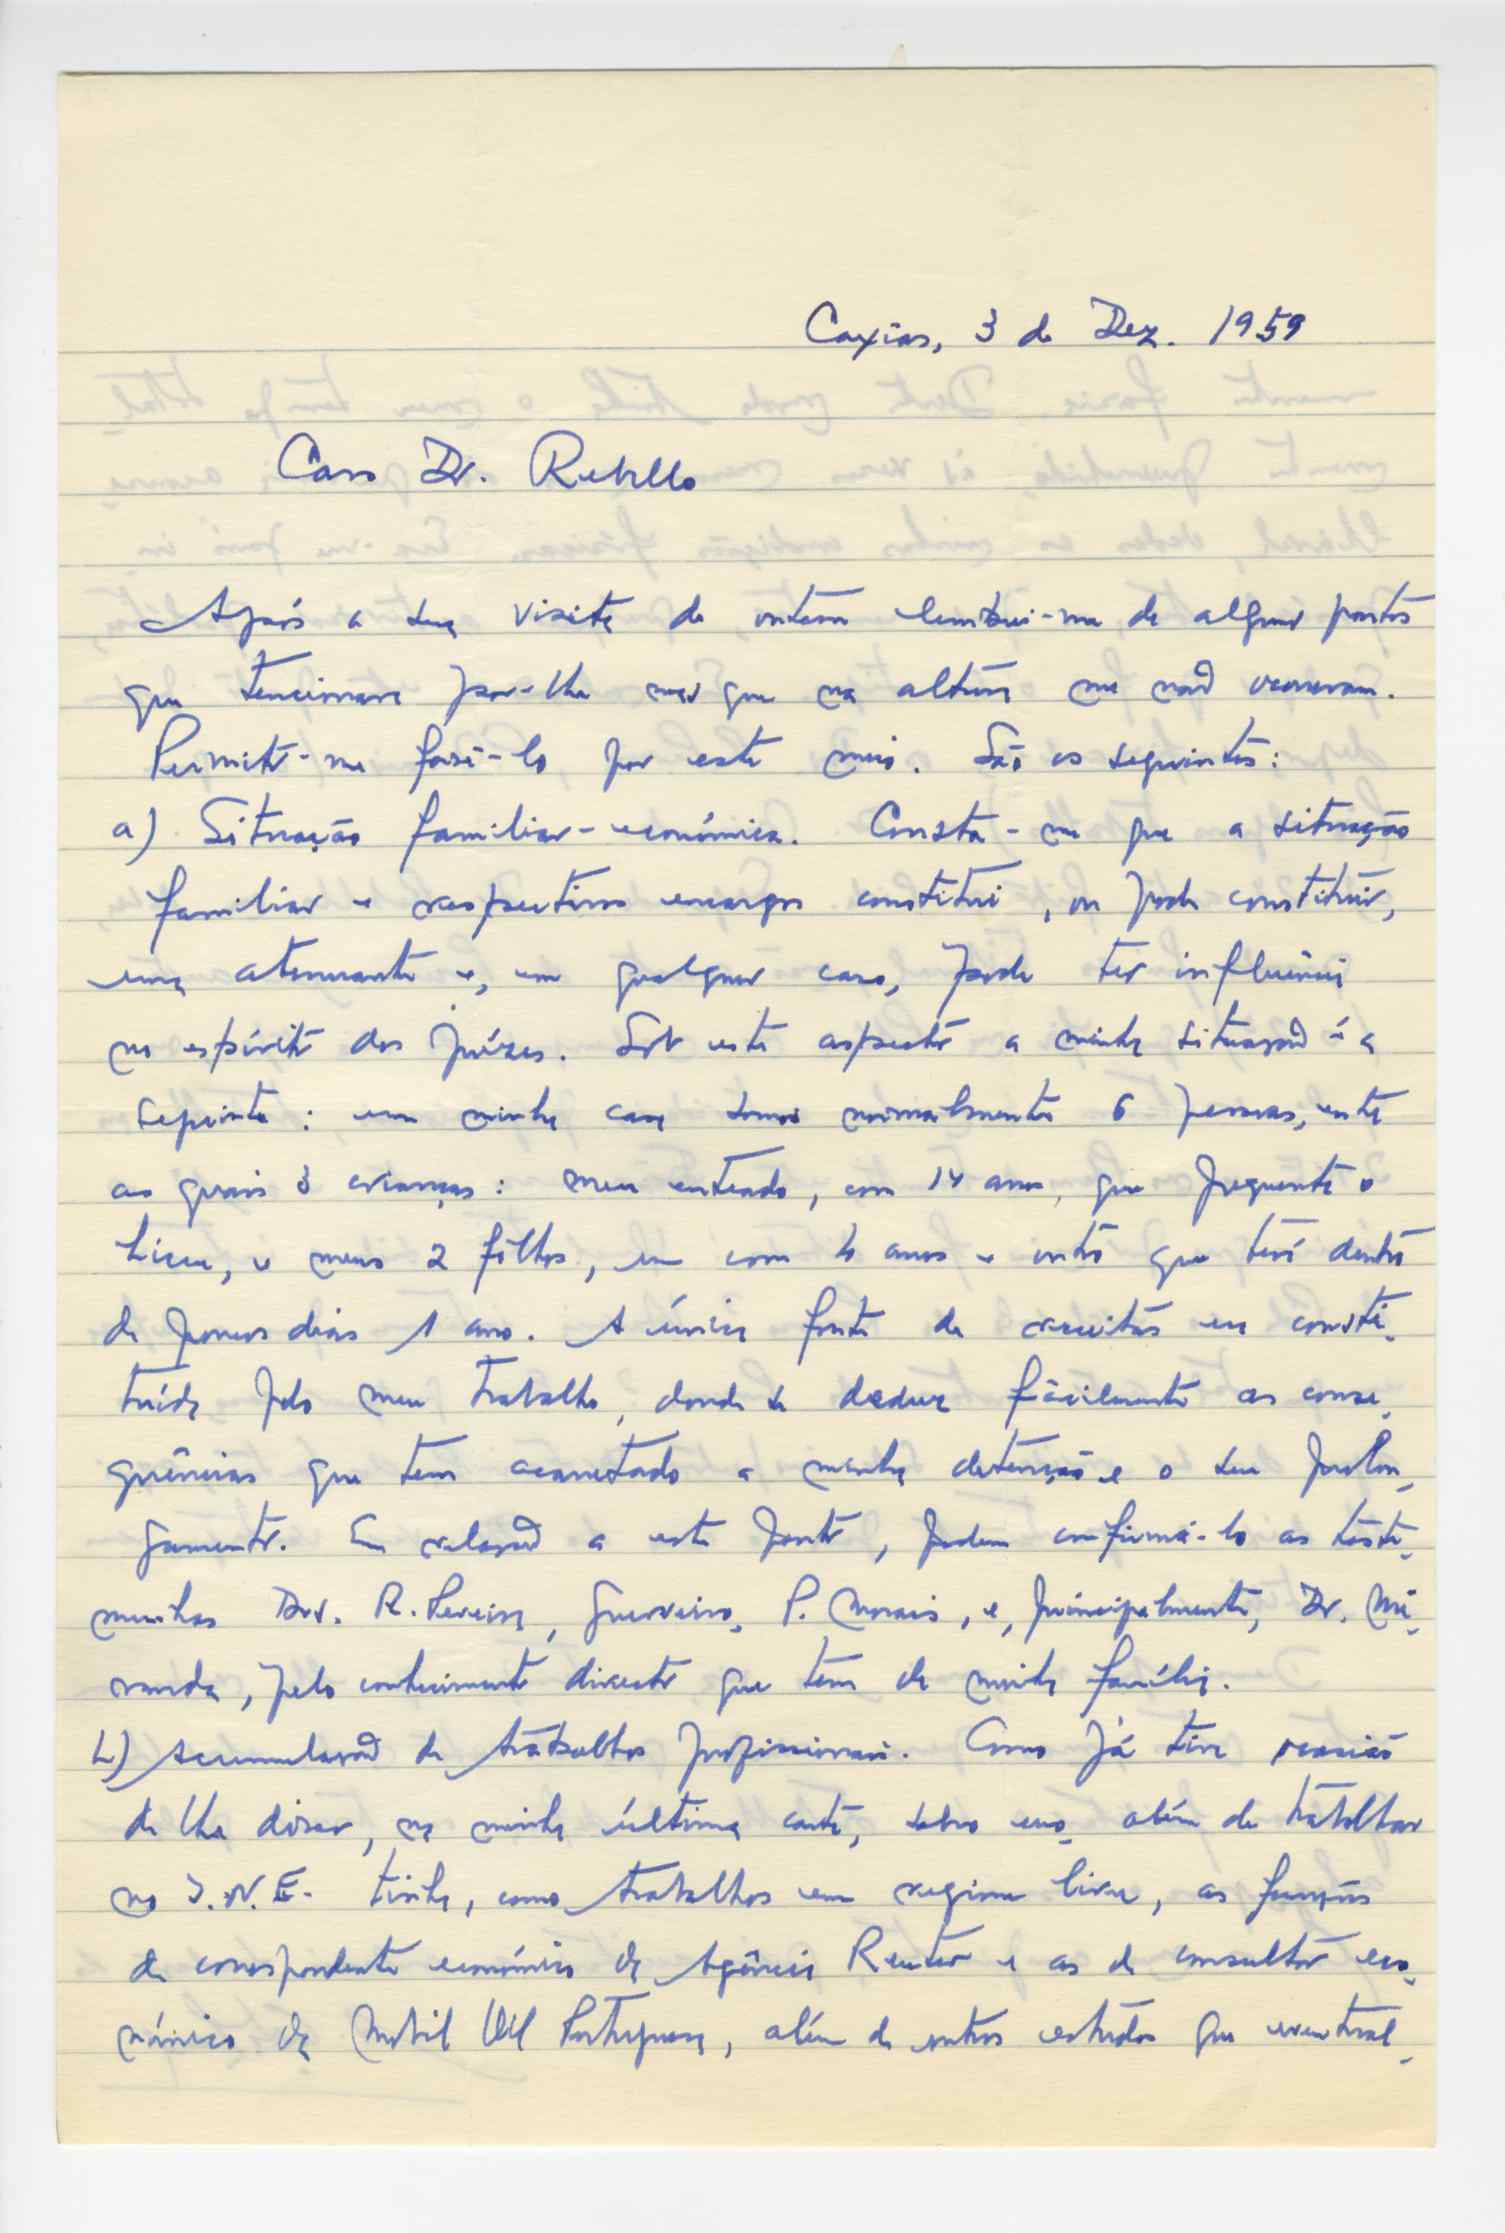 Caxias, 3 de Dez. 1959
Caro Dr. Rebello
Após a sua visita de ontem lembrei-me de alguns pontos
que tencionava pôr-lhe mas que na altura me não ocorreram.
Permita-me fazê-lo por este meio. São os seguintes:
a) Situação familiar-económica. Consta-me que a situação
familiar e respectivos encargos constitui, ou pode constituir,
uma atenuante e, em qualquer caso, pode ter influência
no espírito dos juízes. Sob este aspecto a minha situação é a
seguinte: em minha casa somos normalmente 6 pessoas, entre
as quais 3 crianças: meu enteado, com 14 anos, que frequenta o
liceu, e meus 2 filhos, um com 4 anos e outro que terá dentro
de poucos dias 1 ano. A única fonte de receitas era consti-
tuída pelo meu trabalho, donde se deduz fàcilmente as conse-
quências que tem acarretado a minha detenção e o seu prolon-
gamento. Em relação a este ponto, podem confirmá-lo as teste-
munhas Drs. R. Pereira, Guerreiro, P. Morais, e, principalmente, Dr. Mi-
randa, pelo conhecimento directo que tem da minha família.
b) Acumulação de trabalhos profissionais. Como já tive ocasião
de lhe dizer, na minha última carta, sobre isso, além de trabalhar
no I.N.E. tinha, como trabalhos em regime livre, as funções
de correspondente económico da Agência Reuter e as de consultor eco-
nómico da Mobil Oil Portuguesa, além de outros estudos que eventual-